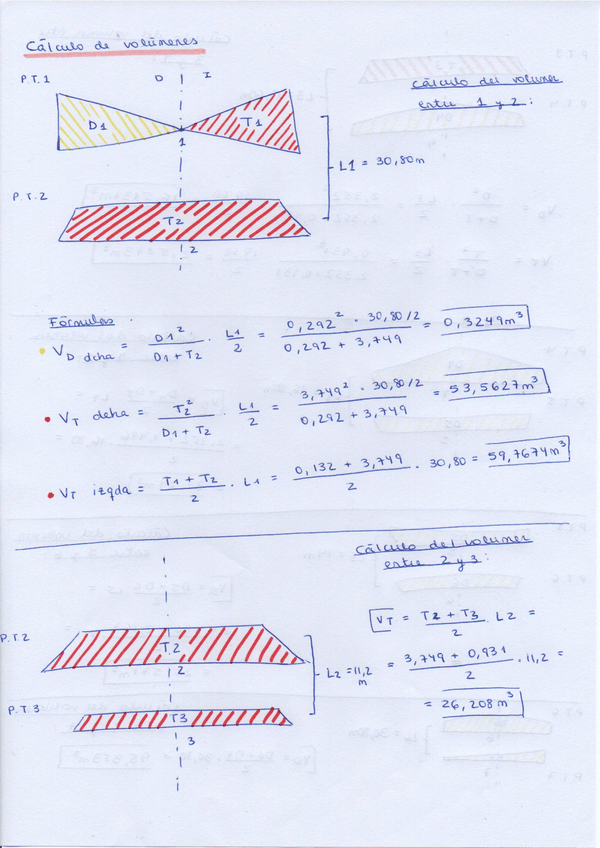 Cálculo de volúmenes
P.T.1
D I
D1
T1
1
Cálculo del volumen
entre 1 y 2:
L1 = 30,80m
P.T.2
T2
2
Fórmulas.
V_D dcha = D1²/(D1 + T2) · L1/2 = (0,292² · 30,80/2)/(0,292 + 3,749) = 0,3249m³
V_T dcha = T2²/(D1 + T2) · L1/2 = (3,749² · 30,80/2)/(0,292 + 3,749) = 53,5627m³
V_T izqda = (T1 + T2)/2 · L1 = (0,132 + 3,749)/2 · 30,80 = 59,7674m³
Cálculo del volumen
entre 2 y 3:
P.T.2
T2
2
L2 = 11,2 m
P.T.3
T3
3
V_T = (T2 + T3)/2 · L2 =
= (3,749 + 0,931)/2 · 11,2 =
= 26,208m³